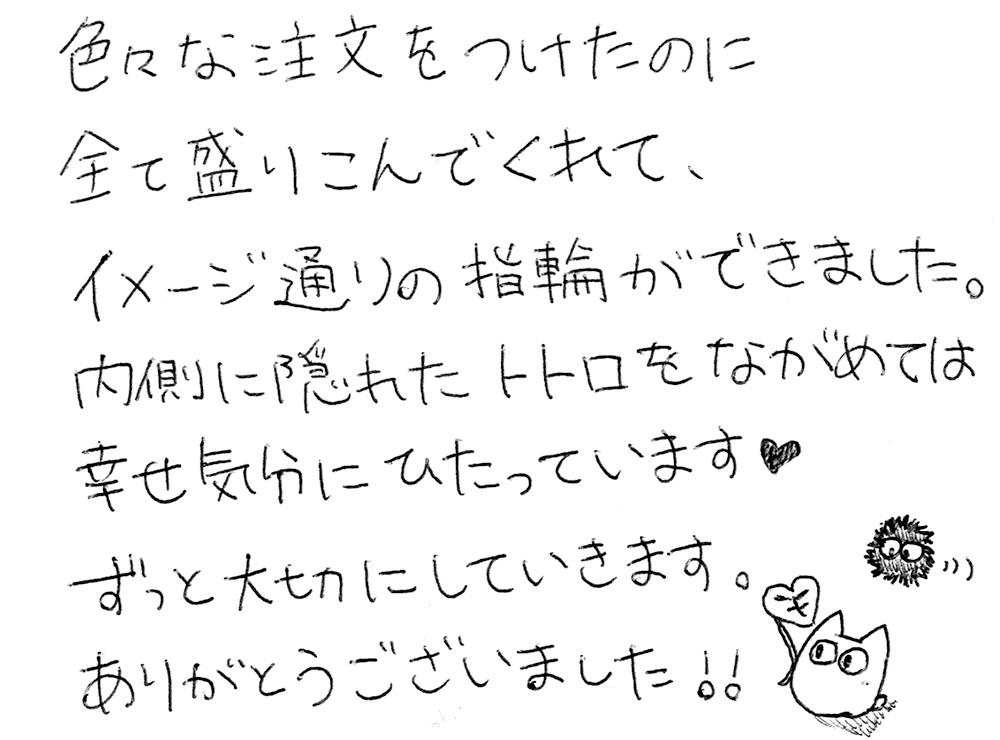 色々な注文をつけたのに
全て盛りこんでくれて、
イメージ通りの指輪ができました。
内側に隠れたトトロをながめては
幸せ気分にひたっています♥
ずっと大切にしていきます。
ありがとうございました!!